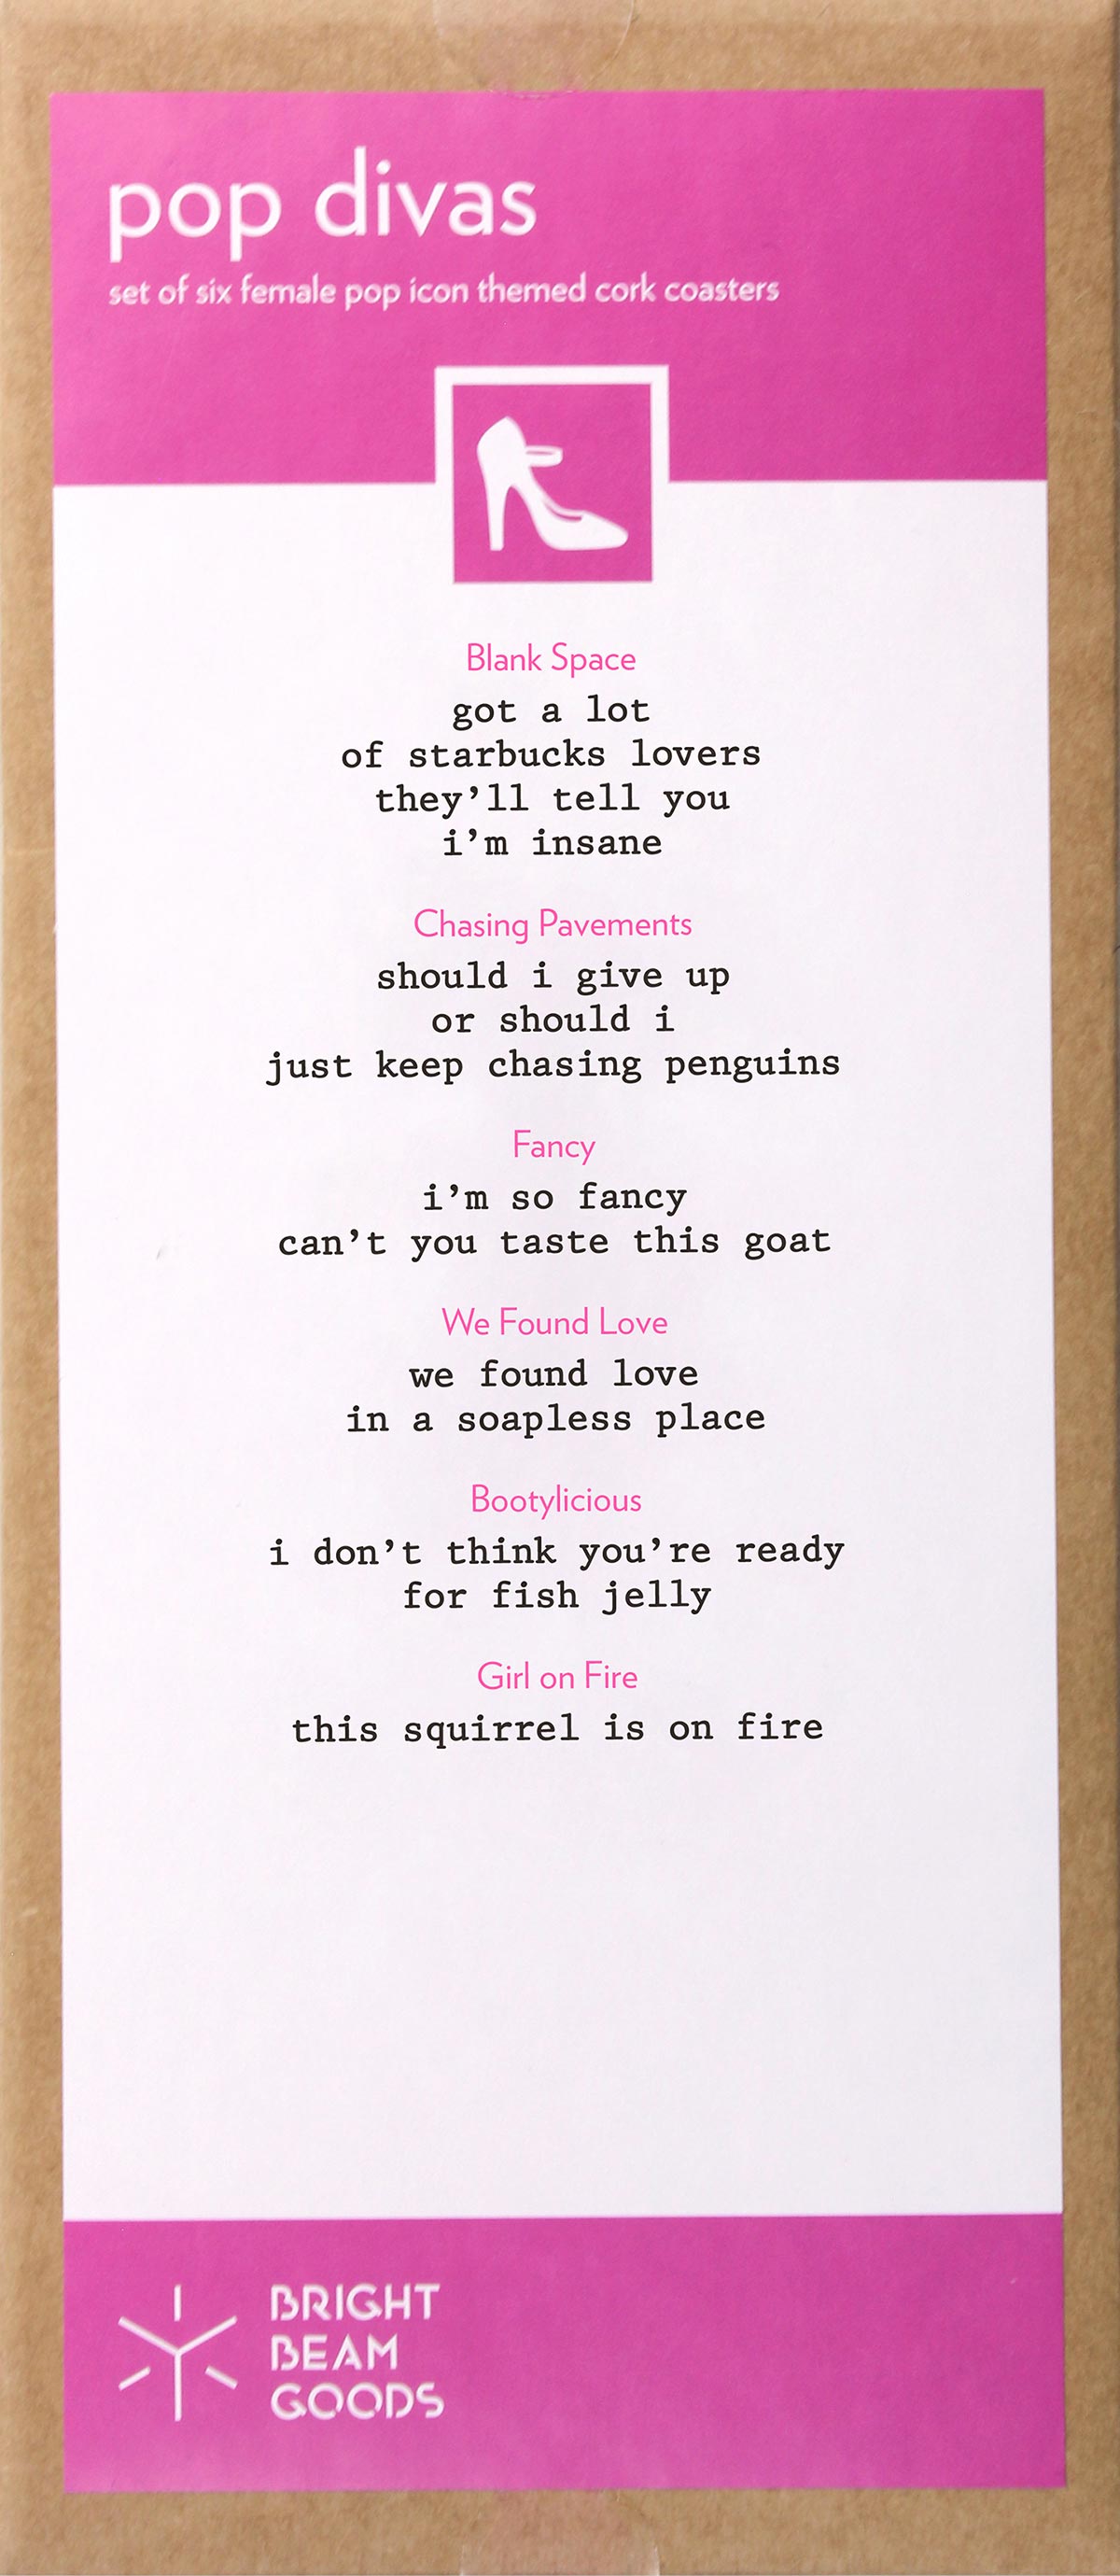 pop divas
set of six female pop icon themed cork coasters
Blank Space
got a lot
of starbucks lovers
they’ll tell you
i’m insane
Chasing Pavements
should i give up
or should i
just keep chasing penguins
Fancy
i’m so fancy
can’t you taste this goat
We Found Love
we found love
in a soapless place
Bootylicious
i don’t think you’re ready
for fish jelly
Girl on Fire
this squirrel is on fire
BRIGHT
BEAM
GOODS